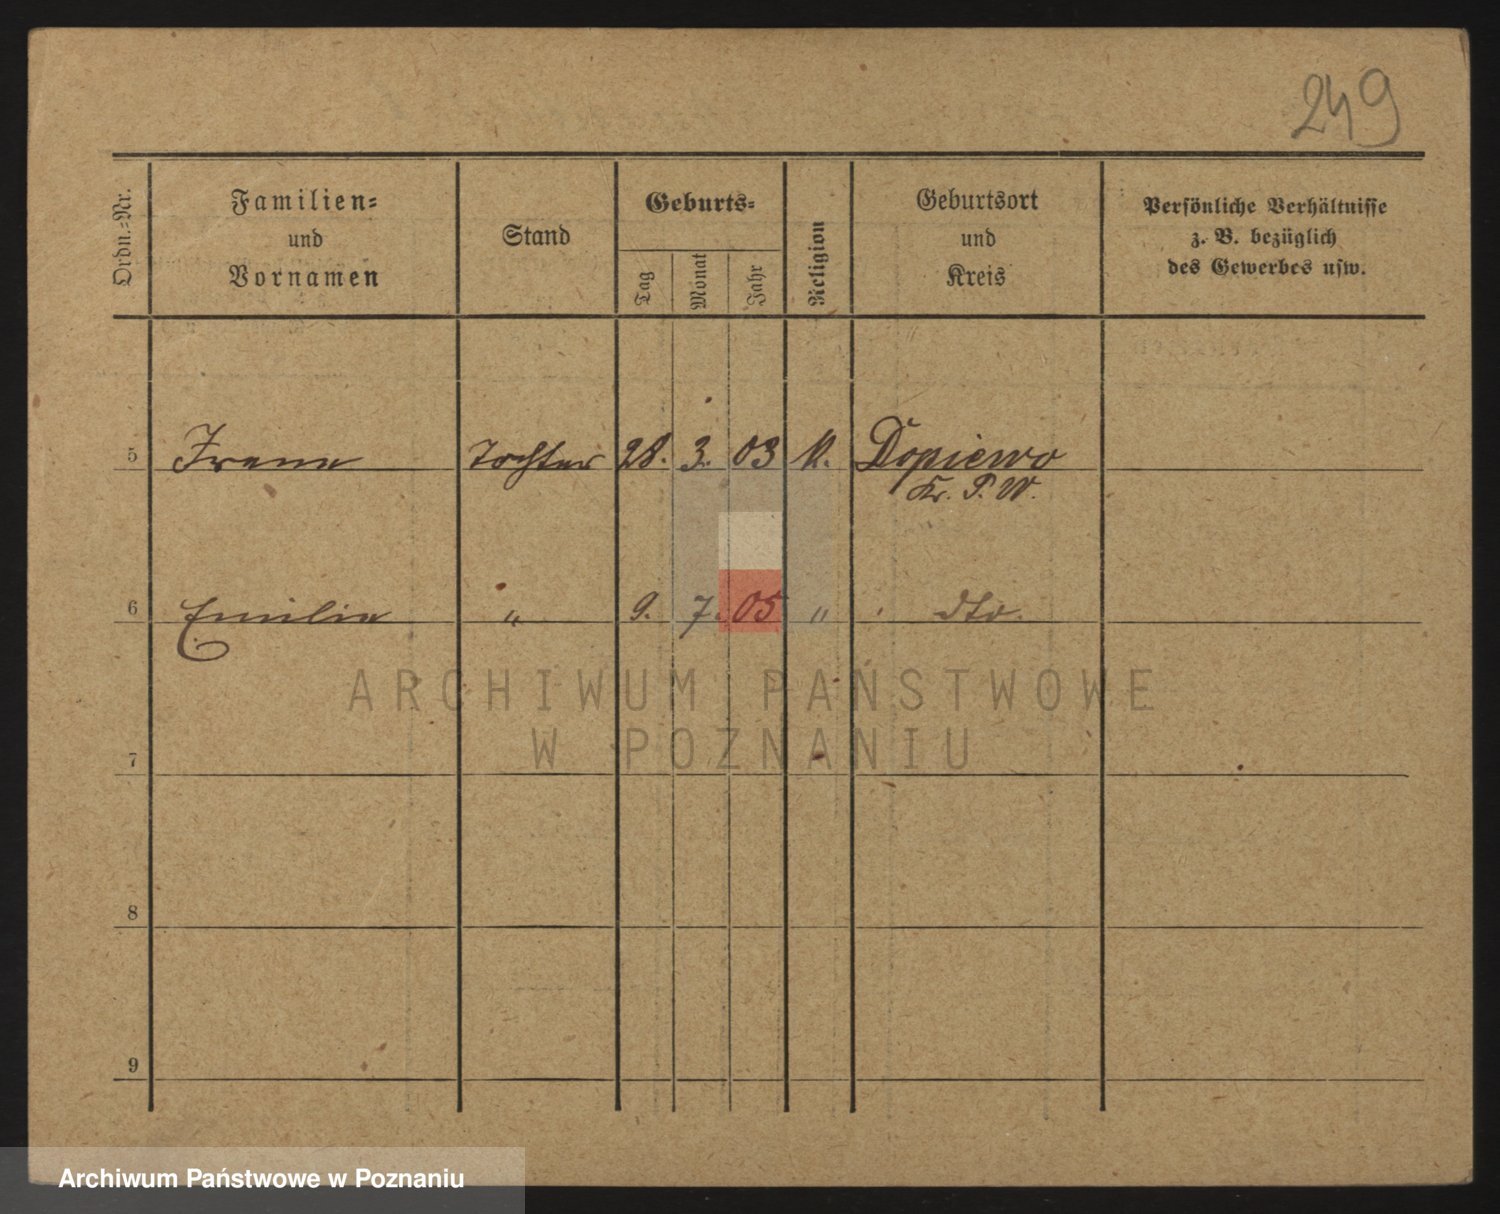 249
Ordn.-Nr.
Familien-
und
Vornamen
Stand
Geburts-
Tag
Monat
Jahr
Religion
Geburtsort
und
Kreis
Persönliche Verhältnisse
z. B. bezüglich
des Gewerbes usw.
5 Irene Tochter 28. 3. 03 K. Dopiewo
Kr. P. W.
6 Emilie " 9. 7. 05 " dto.
ARCHIWUM PAŃSTWOWE
W POZNANIU
7
8
9
Archiwum Państwowe w Poznaniu